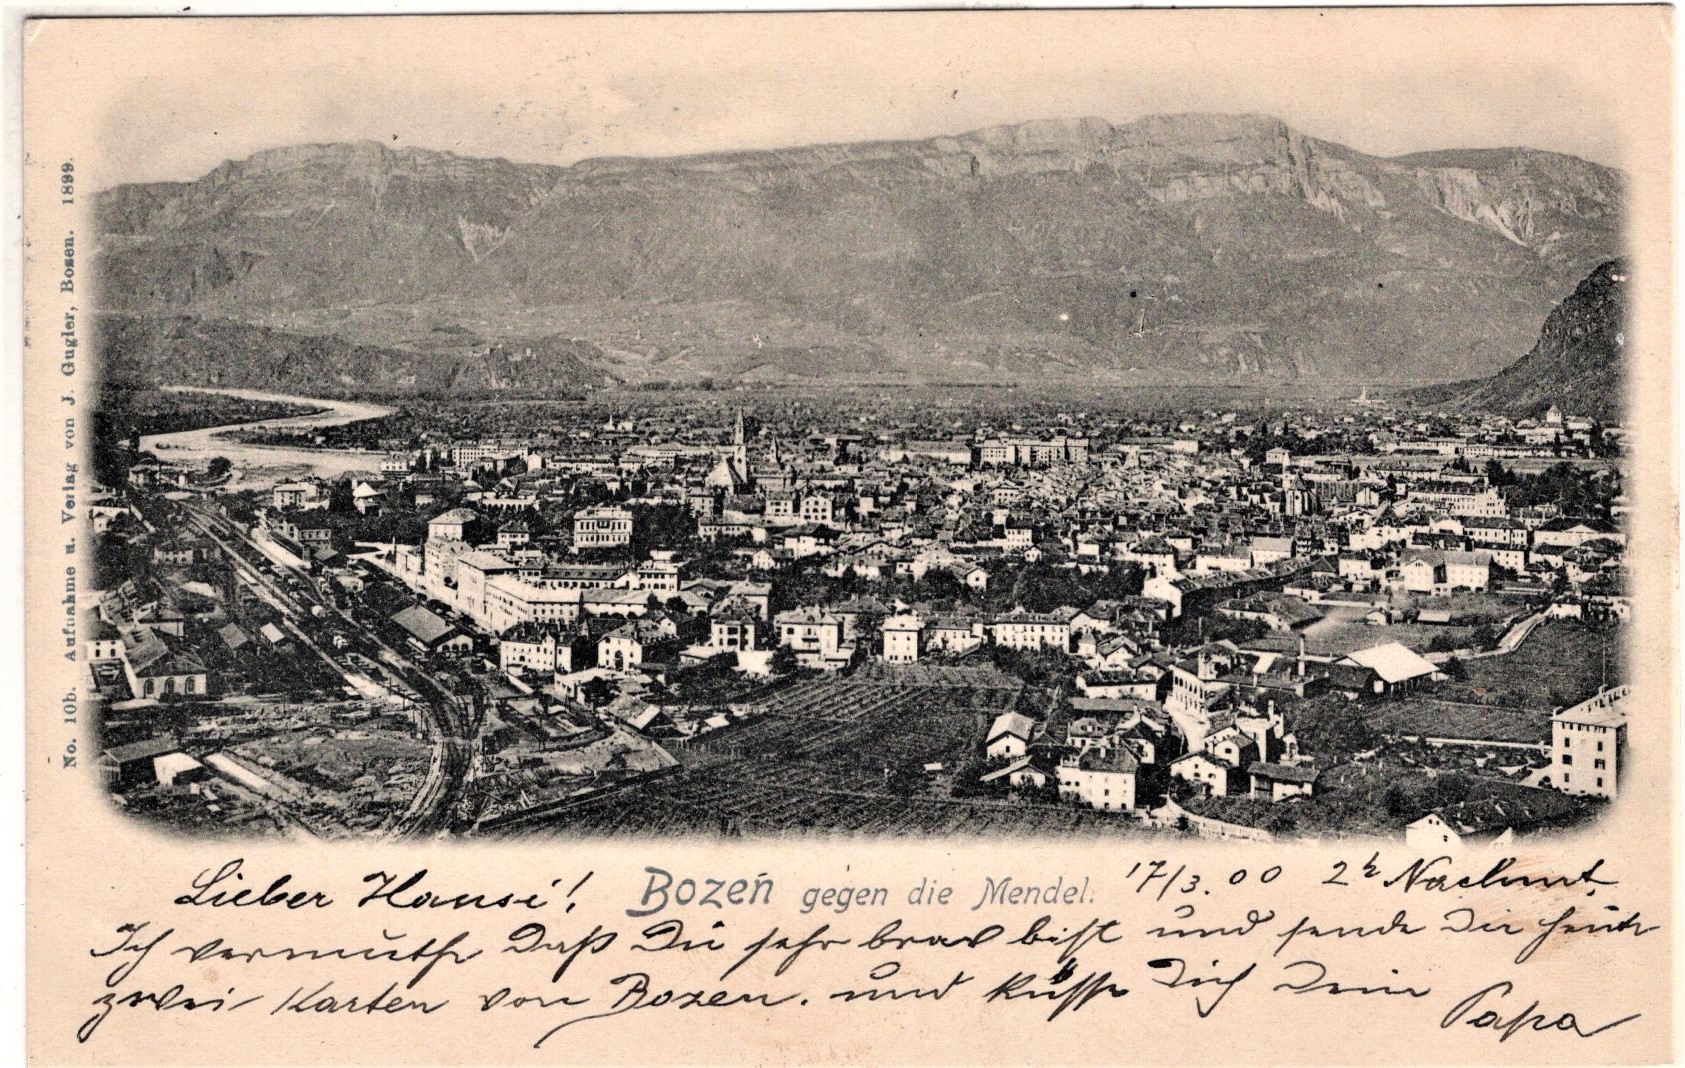 No. 10b. Aufnahme u. Verlag von J. Gugler, Bozen. 1899.
Lieber Hansi! Bozen gegen die Mendel. 17/3.00 2h Nachmt.
Ich vermuthe daß Du sehr brav bist und sende Dir heute
zwei Karten von Bozen. und küsse Dich Dein
Papa